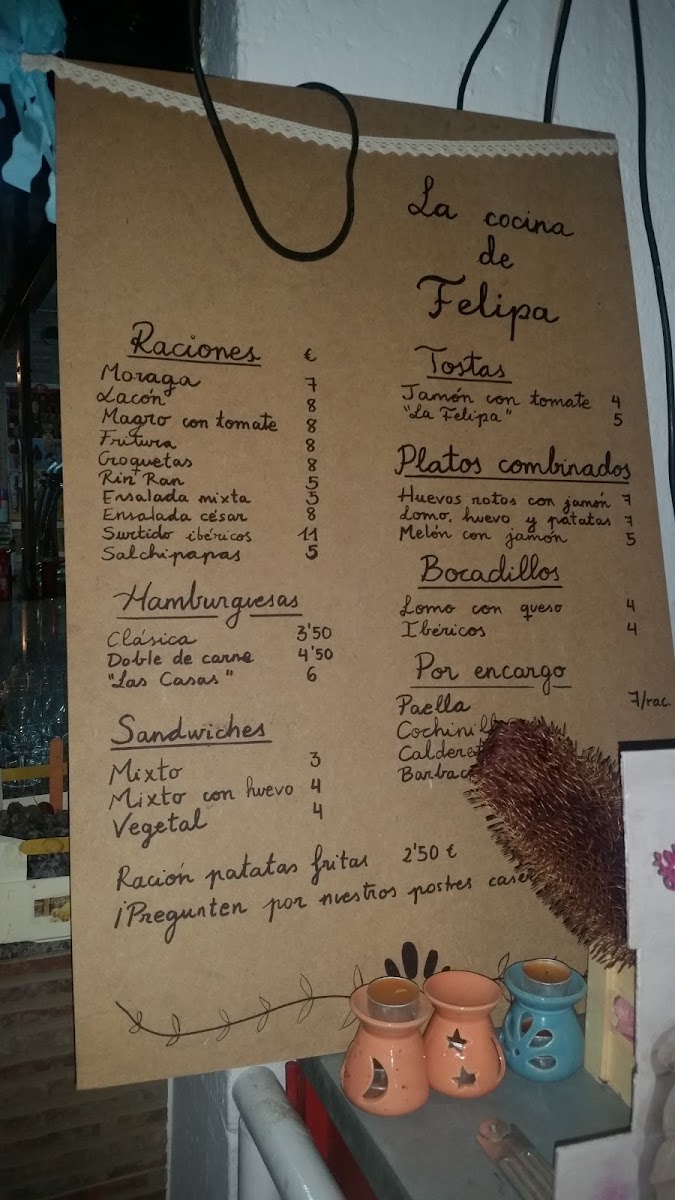 La cocina
de
Felipa
Raciones €
Moraga 7
Lacón 8
Magro con tomate 8
Fritura 8
Croquetas 8
Rin Ran 5
Ensalada mixta 5
Ensalada césar 8
Surtido ibéricos 11
Salchipapas 5
Hamburguesas
Clásica 3'50
Doble de carne 4'50
"Las Casas" 6
Sandwiches
Mixto 3
Mixto con huevo 4
Vegetal 4
Tostas
Jamón con tomate 4
"La Felipa" 5
Platos combinados
Huevos rotos con jamón 7
Lomo, huevo y patatas 7
Melón con jamón 5
Bocadillos
Lomo con queso 4
Ibéricos 4
Por encargo
Paella 7/rac.
Ración patatas fritas 2'50 €
¡Pregunten por nuestros postres